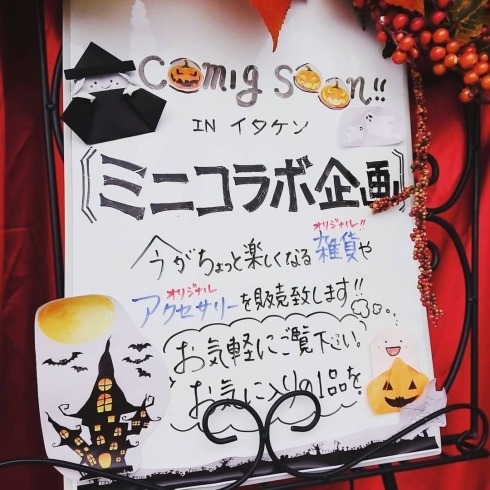 Comig Soon!!
IN イタケン
《ミニコラボ企画》
オリジナル!!
今がちょっと楽しくなる雑貨や
オリジナル
アクセサリーを販売致します!!
お気軽にご覧下さい。
お気に入りの1品を